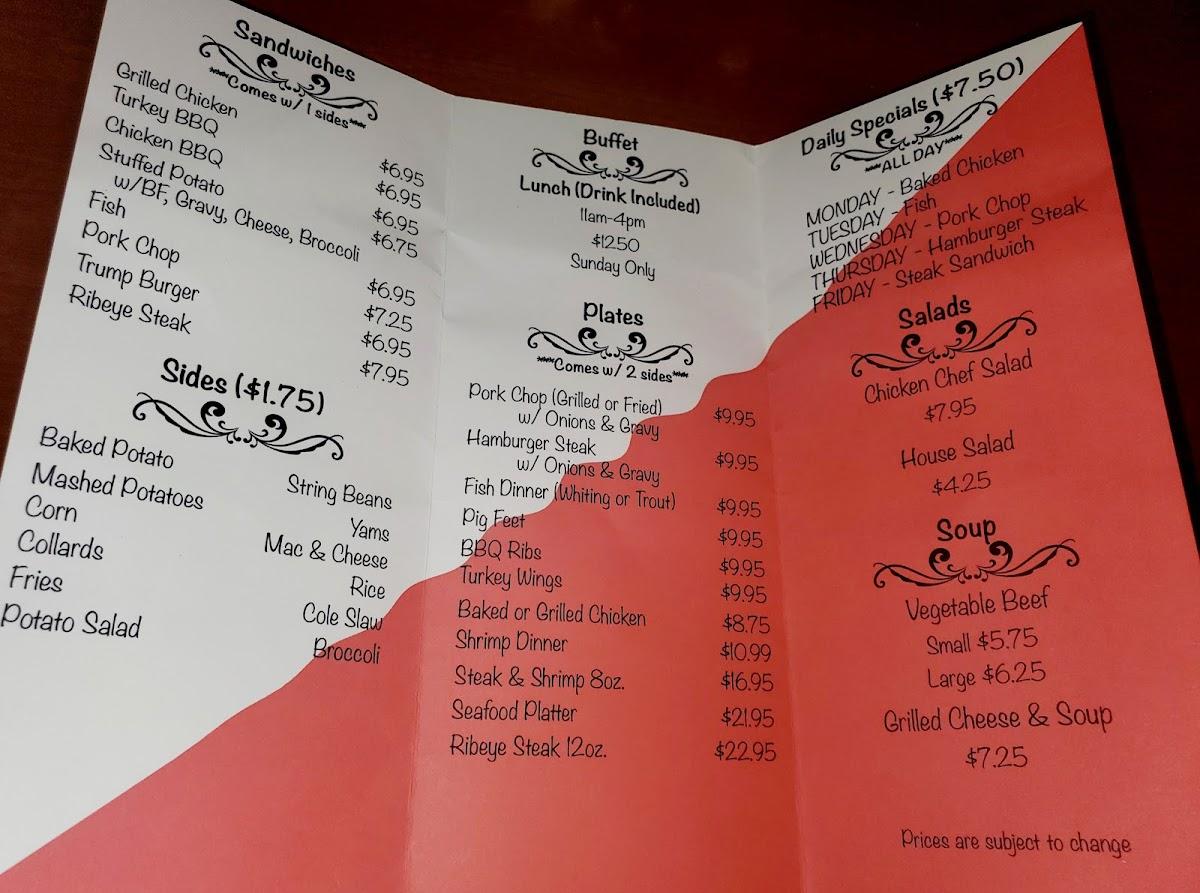 Sandwiches
***Comes w/ 1 sides***
Grilled Chicken $6.95
Turkey BBQ $6.95
Chicken BBQ $6.95
Stuffed Potato $6.75
w/BF, Gravy, Cheese, Broccoli
Fish $6.95
Pork Chop $7.25
Trump Burger $6.95
Ribeye Steak $7.95
Sides ($1.75)
Baked Potato String Beans
Mashed Potatoes Yams
Corn Mac & Cheese
Collards Rice
Fries Cole Slaw
Potato Salad Broccoli
Buffet
Lunch (Drink Included)
11am-4pm
$1250
Sunday Only
Plates
***Comes w/ 2 sides***
Pork Chop (Grilled or Fried) $9.95
w/ Onions & Gravy
Hamburger Steak $9.95
w/ Onions & Gravy
Fish Dinner (Whiting or Trout) $9.95
Pig Feet $9.95
BBQ Ribs $9.95
Turkey Wings $9.95
Baked or Grilled Chicken $8.75
Shrimp Dinner $10.99
Steak & Shrimp 8oz. $16.95
Seafood Platter $21.95
Ribeye Steak 12oz. $22.95
Daily Specials ($7.50)
***ALL DAY***
MONDAY - Baked Chicken
TUESDAY - Fish
WEDNESDAY - Pork Chop
THURSDAY - Hamburger Steak
FRIDAY - Steak Sandwich
Salads
Chicken Chef Salad
$7.95
House Salad
$4.25
Soup
Vegetable Beef
Small $5.75
Large $6.25
Grilled Cheese & Soup
$7.25
Prices are subject to change